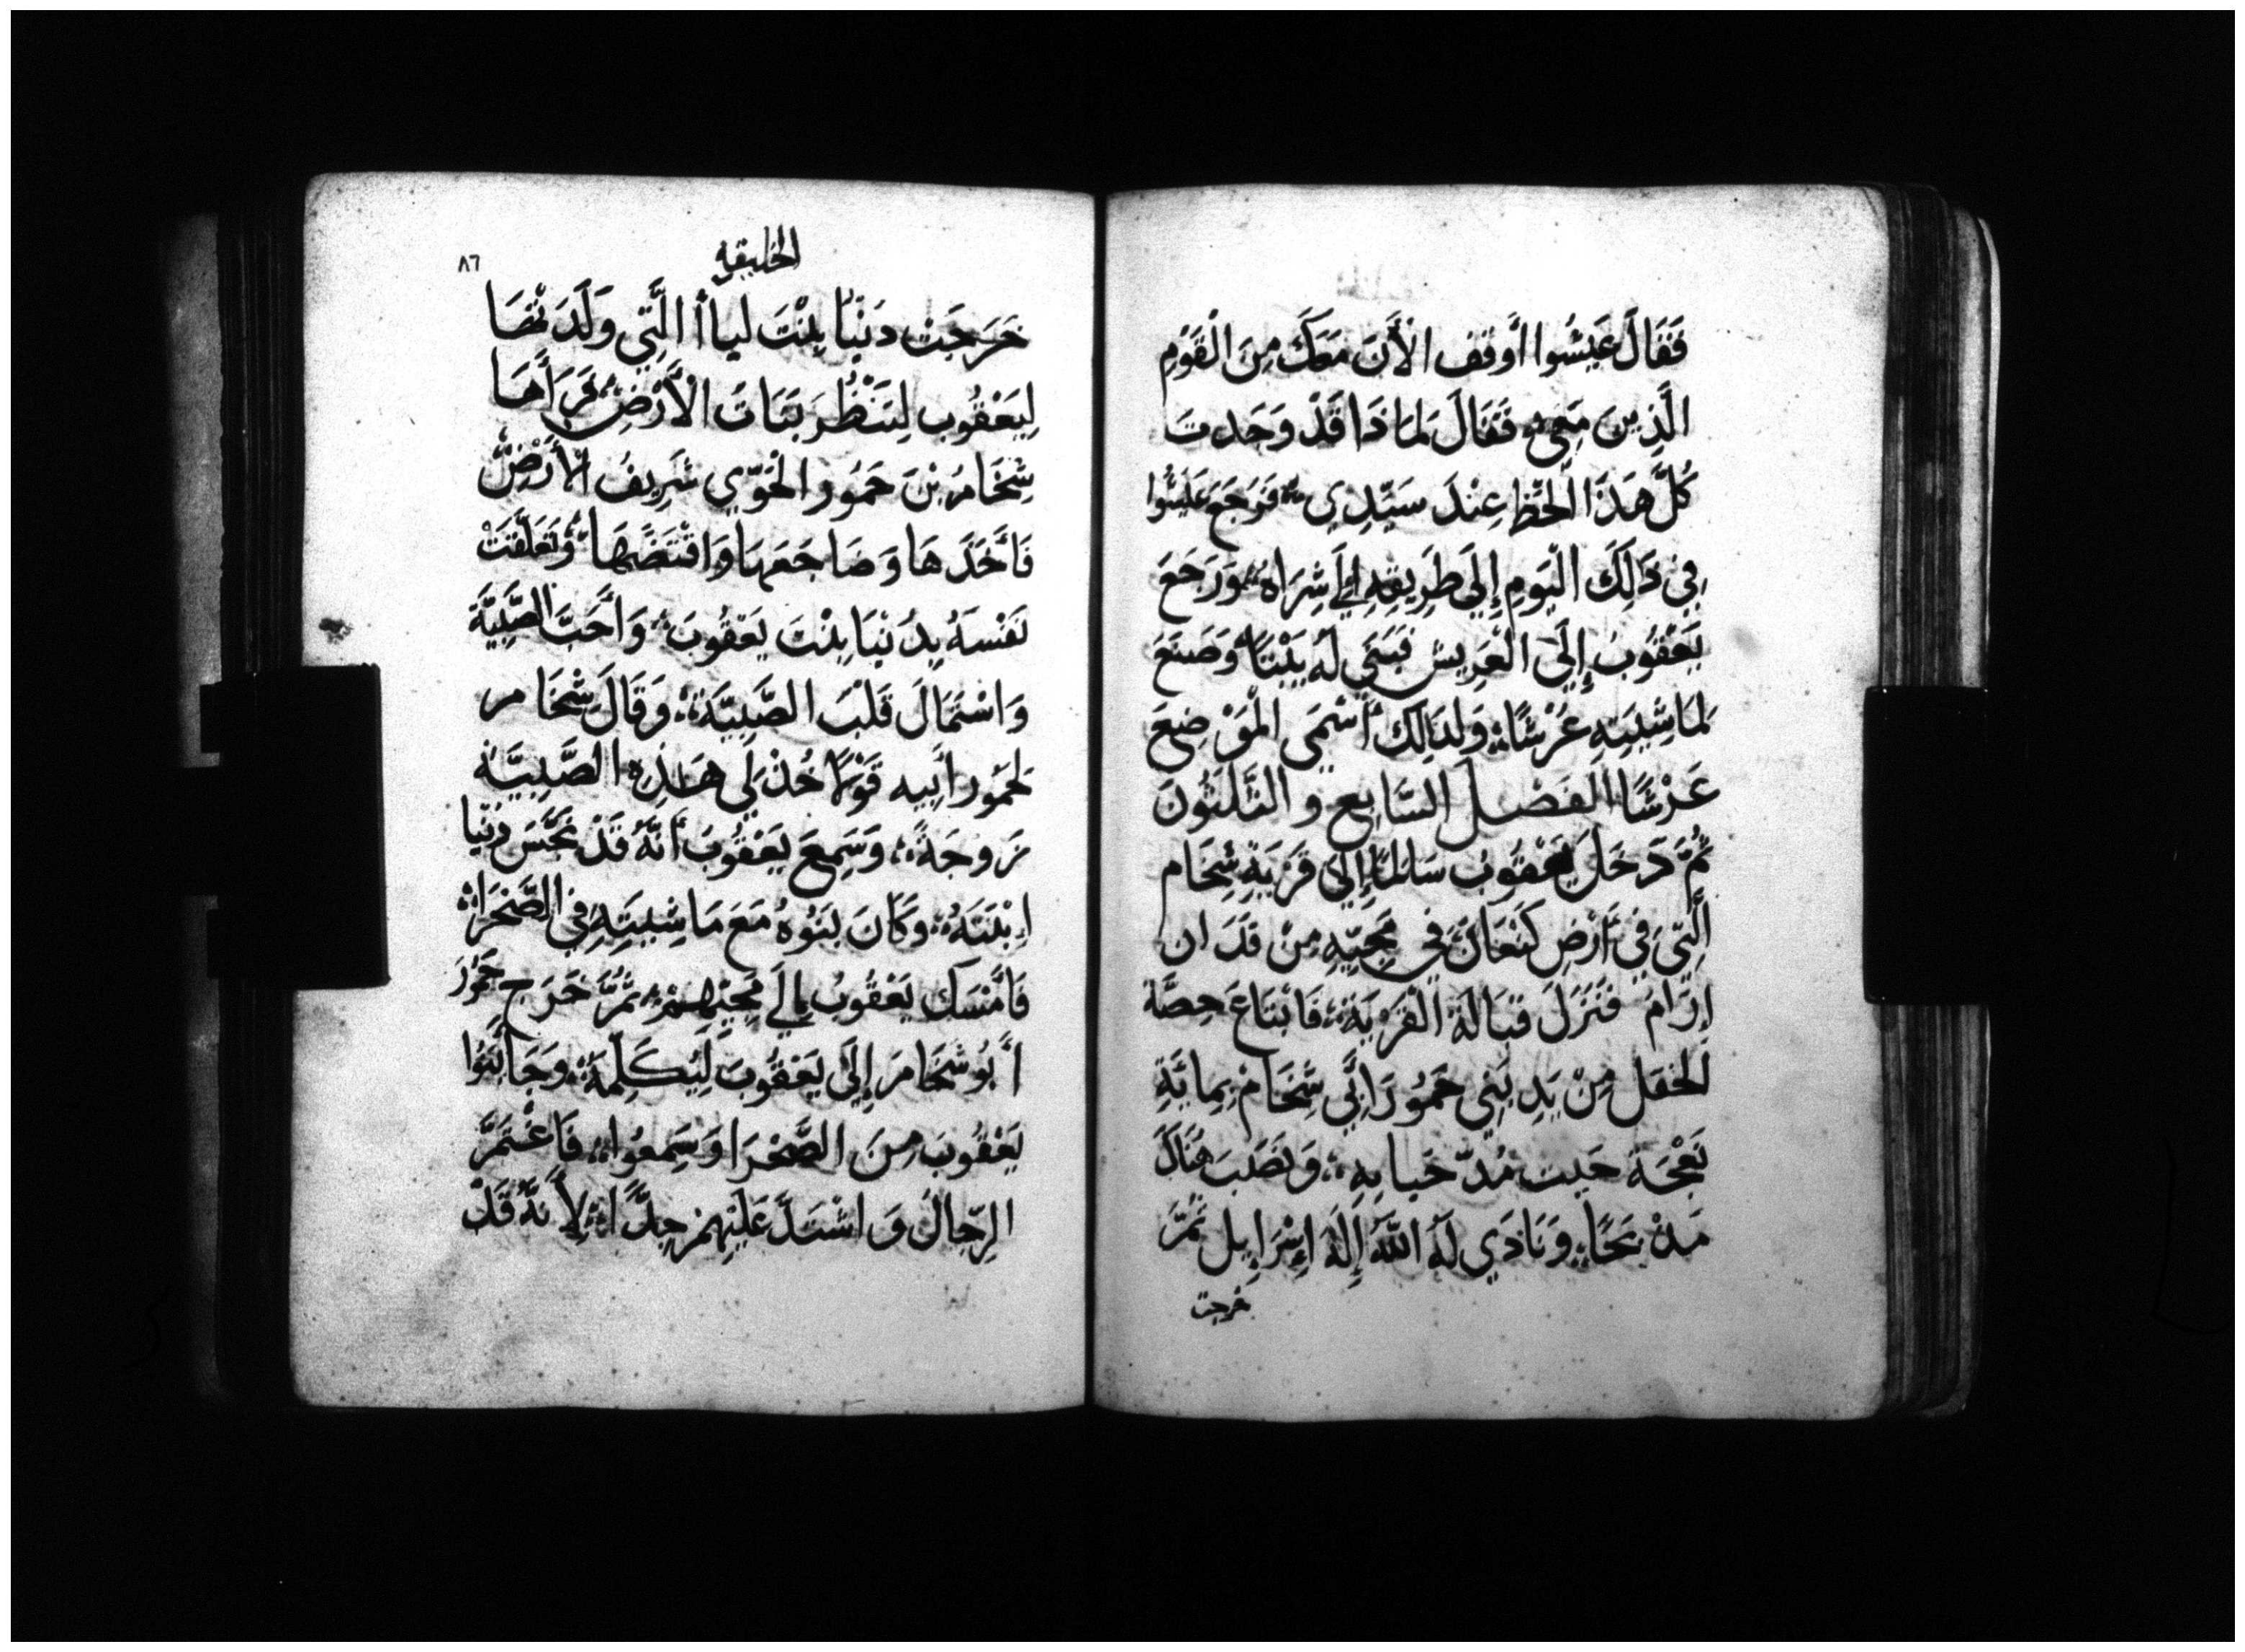 فَقَالَ عَيْسُوا اَوقف الأَنَ مَعَكَ مِنَ الْقَوْمِ
الَّذِينَ مَعِي فَقَالَ لمَا ذَا قَدْ وَجَدتَ
كُلَّ هَذَا الْحَظ عِنْدَ سَيِّدِي فَرَجَعَ عَيْشُوا
فِي ذَلِكَ الْيَومِ إِلَى طَرِيقِهِ إلَى شِرَاه وَرَجَعَ
يَعْقُوبُ إِلَى الْعَرِيش فَبَنَى لَهُ بَيْتًا وَصَنَعَ
لمَاشِيَتِهِ عَرْشًا وَلِذَالِكَ أَسْمَى الْمَوْضِعَ
عَرْشًا الفَصْل السَّابِع وَالثَّلَثُونَ
ثُمَّ دَخَلَ يَعْقُوبُ سَالمًا إِلَى قَرْيَةِ شِخَام
الَّتِي فِي أَرْضِ كَنْعَانَ فِي مَجِيّهِ مِنْ فَدَان
اِرَامَ فَنَزَلَ قُبَالَةَ الْقَرْيَةِ فَابْتَاعَ حِصَّة
الحقل مِنْ يَدِ بَنِي حَمُورَ اَبِي شِخَامْ بِمايَةِ
نَعْجَة حَيث مُدّ خَبايه وَنَصَبَ هُنَاكَ
مَذْبَحًا وَنَادَي لَهُ اللَّهَ إِلَهَ إِسْرَايِل ثُمَّ
خرجت
الخليقه
٨٦
خَرَجَتْ دَيْنَا بِنْتَ ليا أ الَّتِي وَلَدَتْهَا
لِيَعْقُوب لِتَنْظُرَ بَنَاتُ الأَرْضِ فَرَأَهَا
شِخَامُ بْنَ حَمُور الْحَوِّي شَرِيفُ الأَرْضِ
فَأَخَذَهَا وَضَاجَعَهَا وَافْتَضَّهَا وَتَعَلَّقَتْ
نَفْسَهُ بِدَيْنَا بِنْتَ يَعْقُوبَ وَأَحَبَّ الصَّبِيَّةَ
وَاسْتَمَالَ قَلْبَ الصَّبِيَّةِ وَقَالَ شِخَام
لحَمُور أَبِيه قَوْلًا خُذْ لِي هَذِهِ الصَّبِيَّة
زَوجَةً وَسَمِعَ يَعْقُوبَ أَنَّهُ قَدْ نَجَّسَ دَيْنَا
اِبْنَتَهُ وَكَانَ بَنُوهُ مَعَ مَاشِيَتِهِ فِي الصَّحْرَا
فَأَمْسَك يَعْقُوبُ إِلَى مَجِيْهِمْ ثُمَّ خَرَج حَمُورَ
أَبُو شِخَامَ إِلَى يَعْقُوبَ لِيُكَلِّمَهُ وَجَا بَنُوا
يَعْقُوبَ مِنَ الصَّحْرَا وَسَمِعُوا فَاغْتَمَّ
الرِّجَالُ وَاشْتَدَّ عَلَيْهِمْ جِدًّا لِأَنَّهُ قَدْ